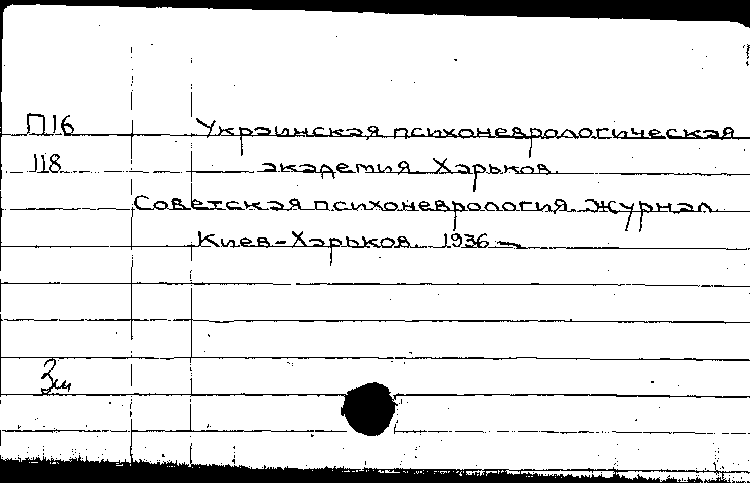 П16 Украинская психоневрологическая
118 академия. Харьков.
Советская психоневрология. Журнал.
Киев-Харьков. 1936 —